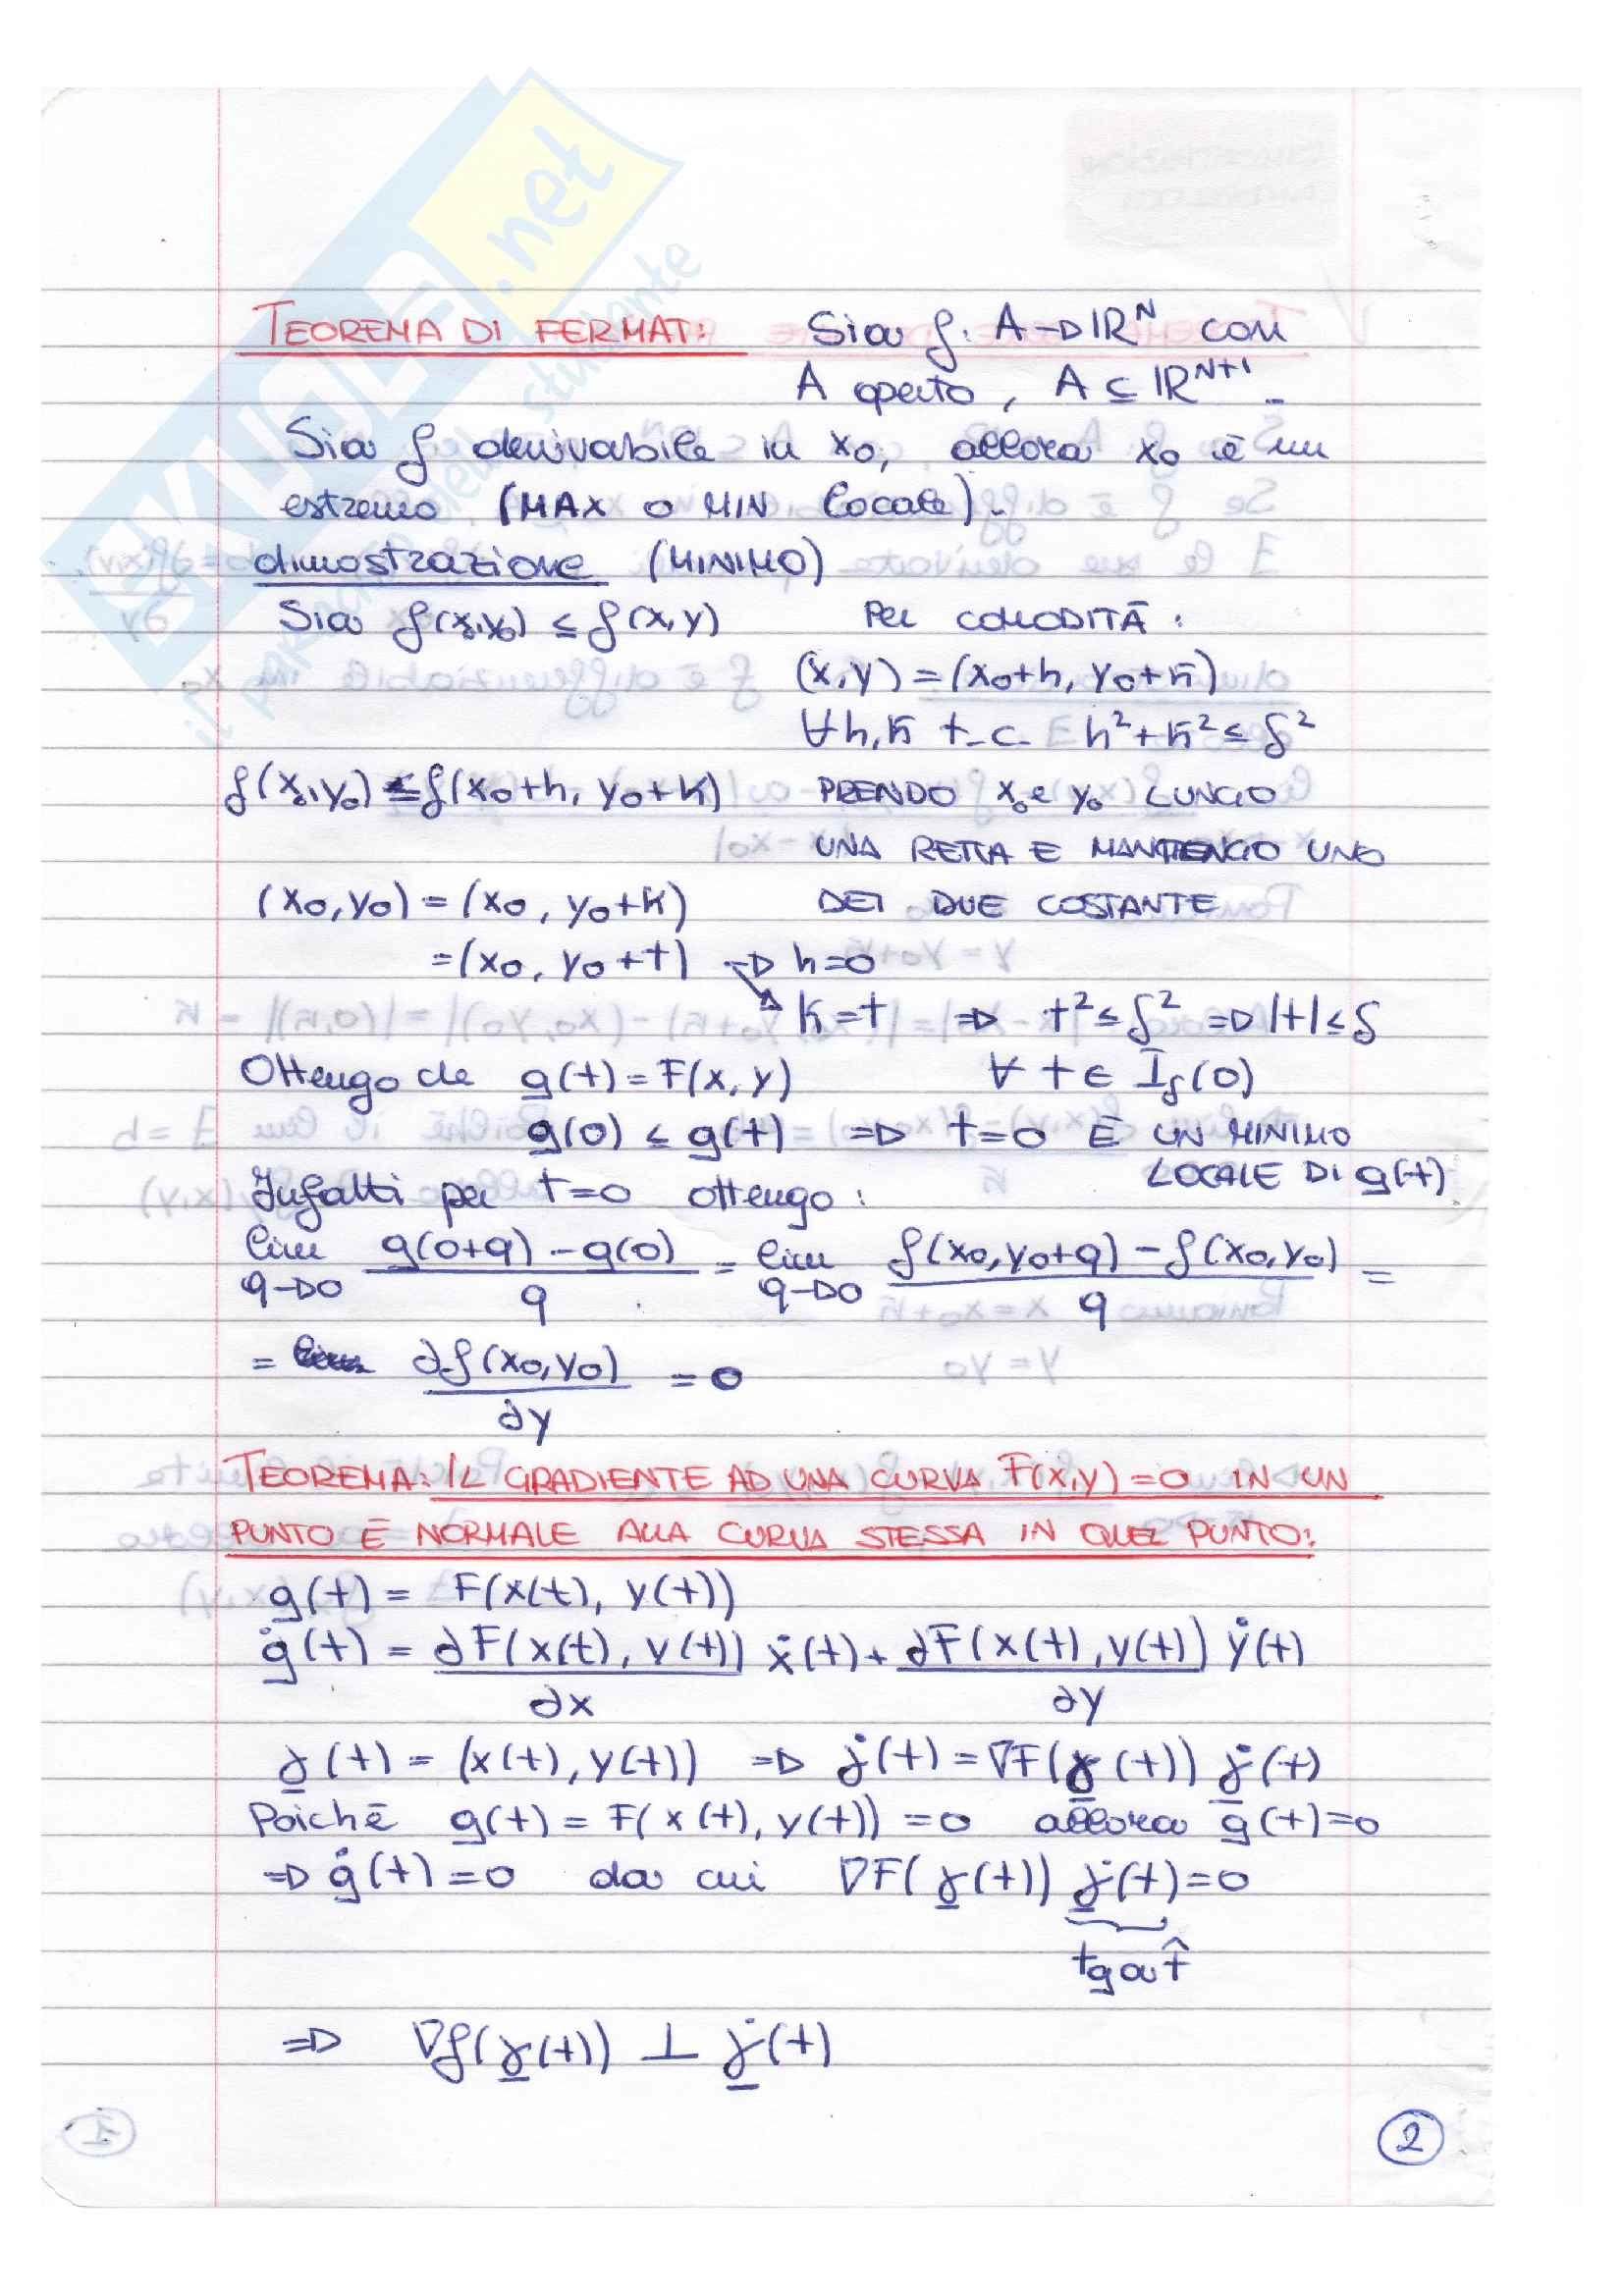 SKUOLA.net
il paradiso dello studente
TEOREMA DI FERMAT: Sia f: A→ℝᴺ con
A aperto, A ⊆ ℝᴺ⁺¹.
Sia f derivabile in x₀, allora x₀ è un
estremo (MAX O MIN locale).
dimostrazione (MINIMO)
Sia f(x₀,y₀) ≤ f(x,y) Per COMODITÀ:
(x,y) = (x₀+h, y₀+k)
∀h,k t.c. h²+k² ≤ δ²
f(x₀,y₀) ≤ f(x₀+h, y₀+k) PRENDO x₀ e y₀ LUNGO
UNA RETTA E MANTENGO UNO
(x₀,y₀) = (x₀, y₀+k) DEI DUE COSTANTE
= (x₀, y₀+t) → h=0
k=t ⇒ t² ≤ δ² ⇒ |t| ≤ δ
Ottengo che g(t) = F(x,y) ∀ t ∈ I_δ(0)
g(0) ≤ g(t) ⇒ t=0 È UN MINIMO
LOCALE DI g(t)
Infatti per t=0 ottengo:
lim q→0 (g(0+q) - g(0))/q = lim q→0 (f(x₀,y₀+q) - f(x₀,y₀))/q =
= ∂f(x₀,y₀)/∂y = 0
TEOREMA: IL GRADIENTE AD UNA CURVA F(x,y)=0 IN UN
PUNTO È NORMALE ALLA CURVA STESSA IN QUEL PUNTO:
g(t) = F(x(t), y(t))
ġ(t) = ∂F(x(t), y(t))/∂x ẋ(t) + ∂F(x(t), y(t))/∂y ẏ(t)
γ(t) = (x(t), y(t)) ⇒ ġ(t) = ∇F(γ(t)) γ̇(t)
Poichè g(t) = F(x(t), y(t)) = 0 allora g(t)=0
⇒ ġ(t)=0 da cui ∇F(γ(t)) γ̇(t)=0
tg a t̂
⇒ ∇f(γ(t)) ⊥ γ̇(t)
2